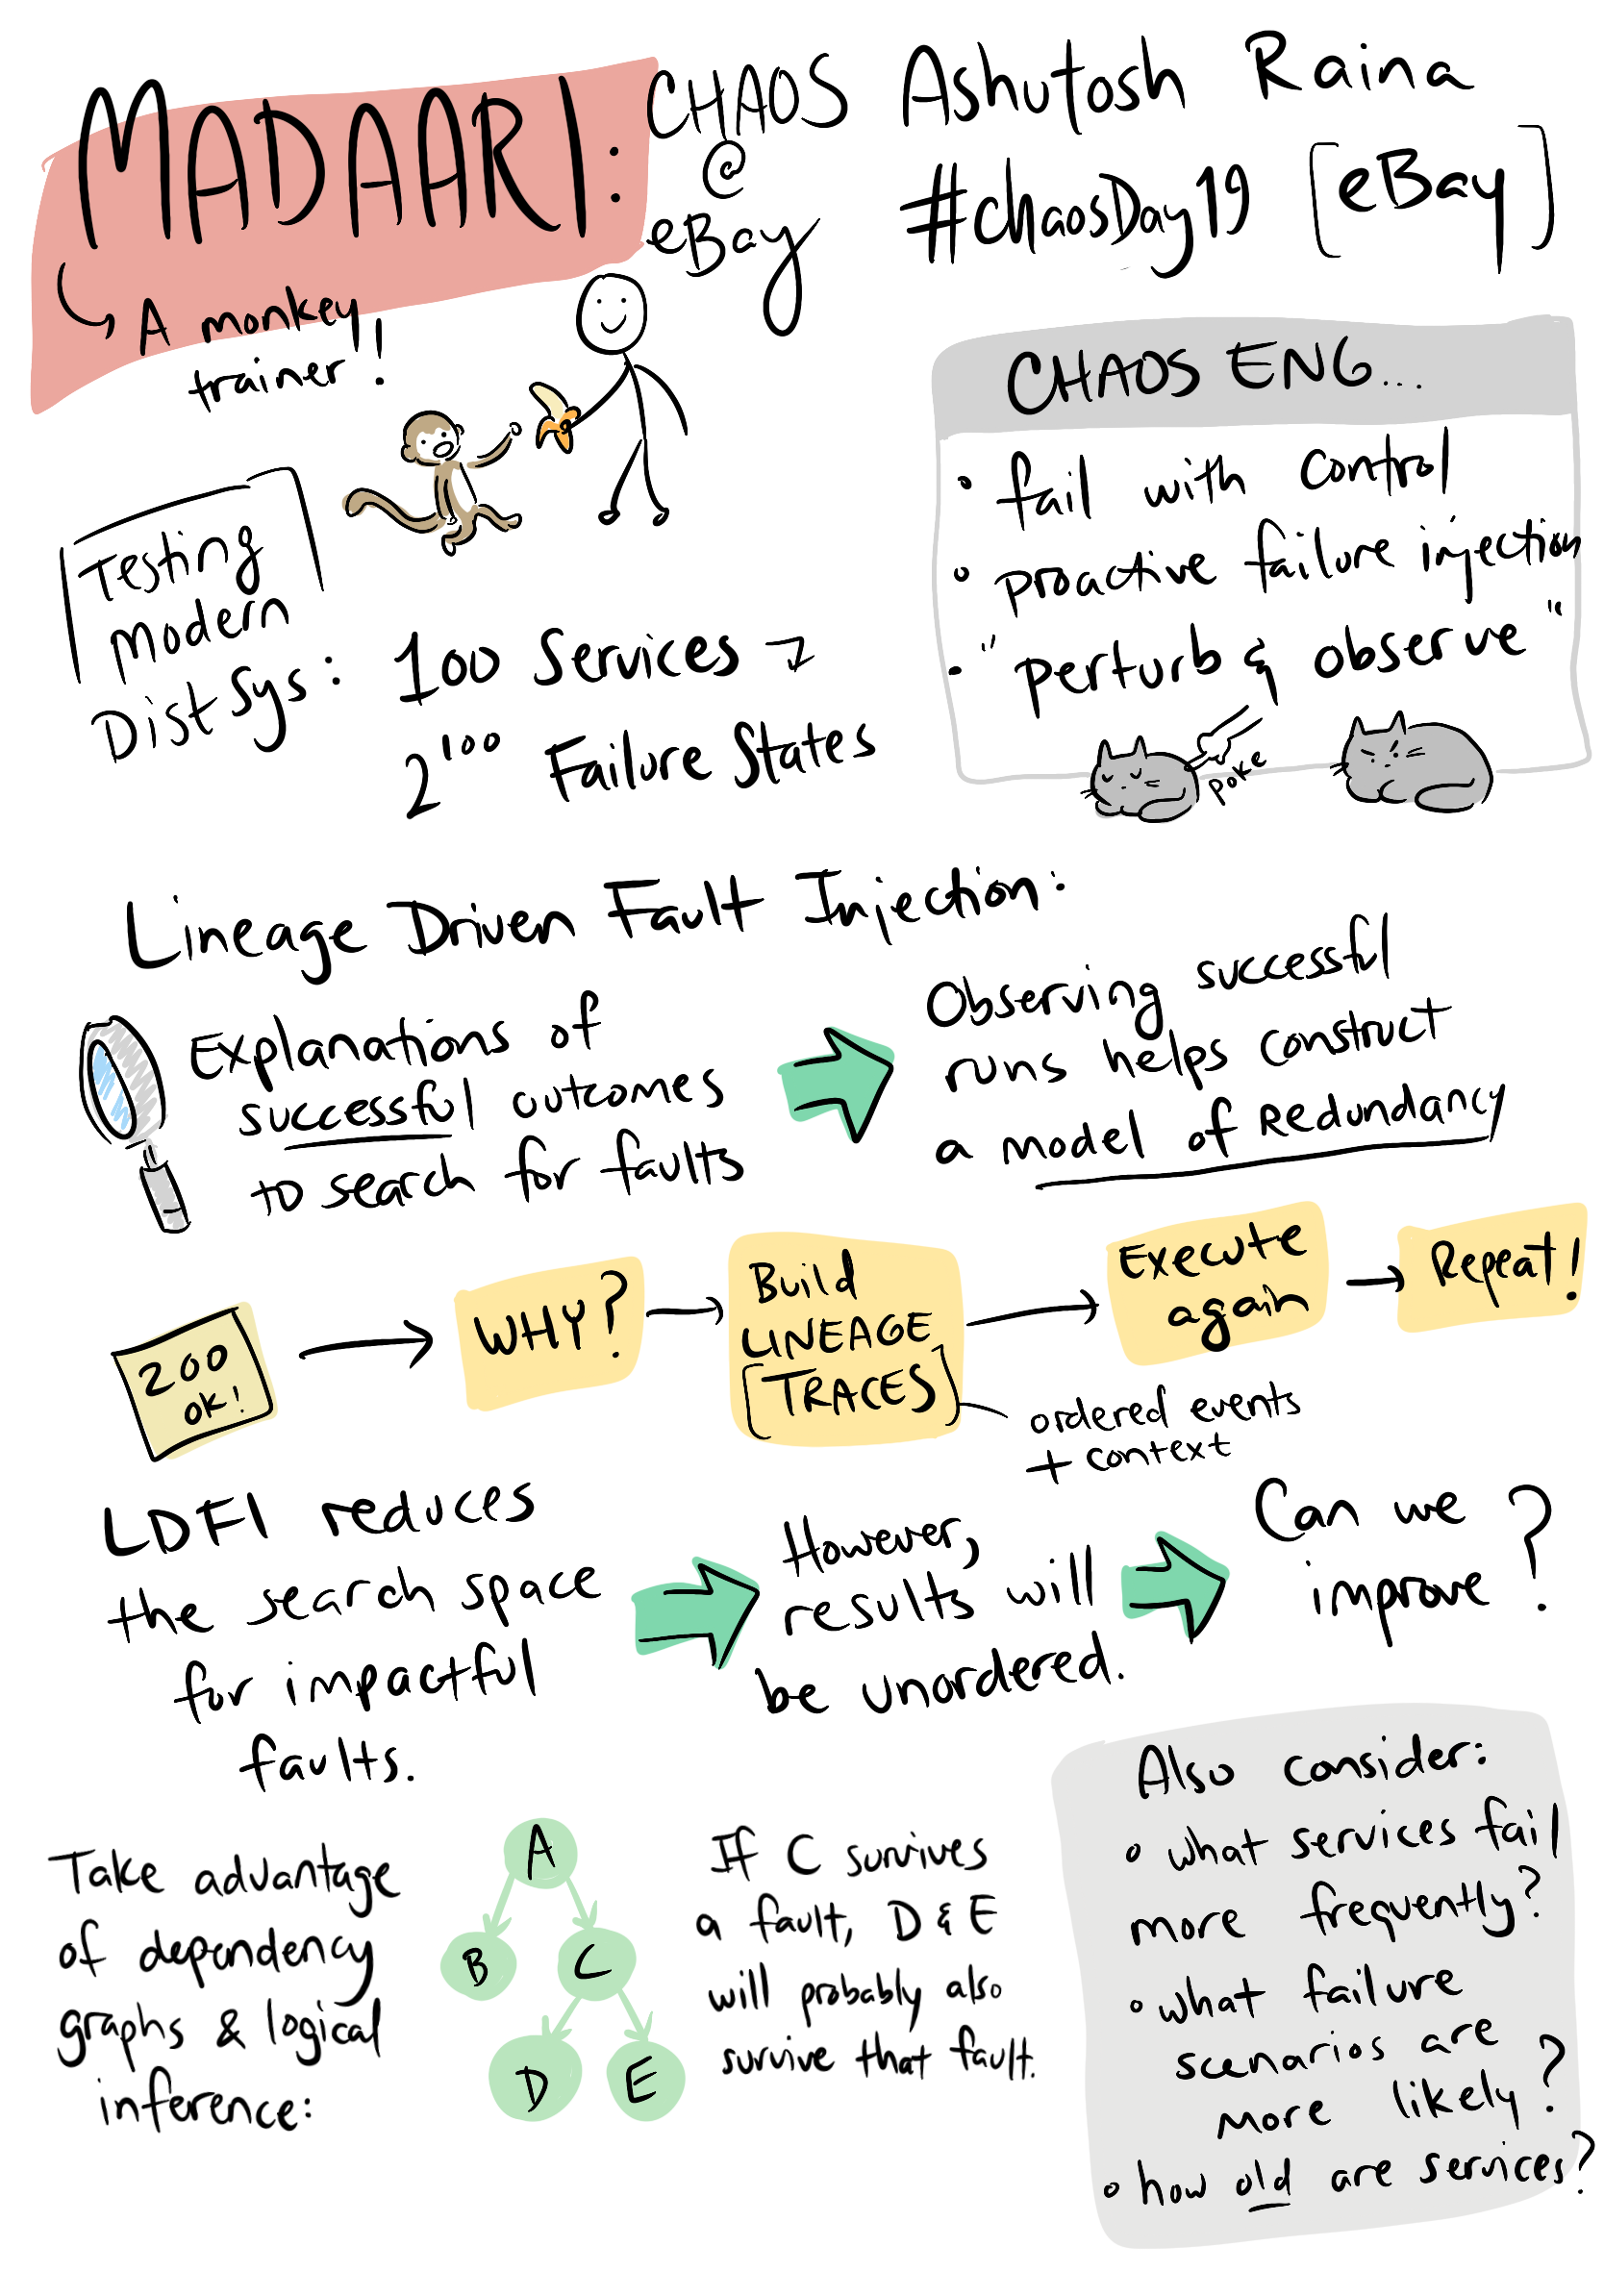 MADAARI:
CHAOS
@
eBay
Ashutosh Raina
#chaosDay19 [eBay]
A monkey
trainer!!
CHAOS ENG...
• fail with control
• proactive failure injection
• "perturb & observe"
poke
Testing
Modern
Dist Sys: 100 Services
2^100 Failure States
Lineage Driven Fault Injection:
Explanations of
successful outcomes
to search for faults
Observing successful
runs helps construct
a model of Redundancy
200
OK!
WHY?
Build
LINEAGE
[TRACES]
ordered events
+ context
Execute
again
Repeat!
LDFI reduces
the search space
for impactful
faults.
However,
results will
be unordered.
Can we
improve?
Take advantage
of dependency
graphs & logical
inference:
A
B
C
D
E
If C survives
a fault, D & E
will probably also
survive that fault.
Also consider:
• what services fail
more frequently?
• what failure
scenarios are
more likely?
• how old are services?